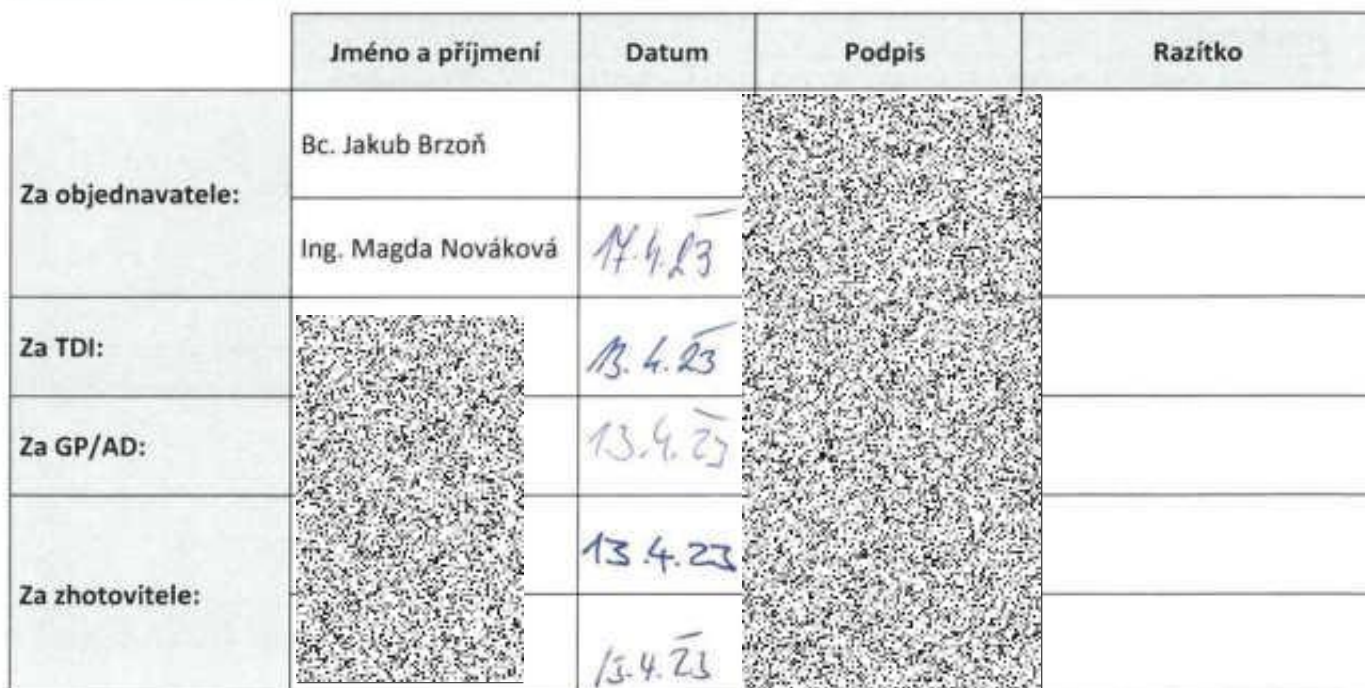 Jméno a příjmení Datum Podpis Razítko
Za objednavatele: Bc. Jakub Brzoň
Ing. Magda Nováková 17.4.23
Za TDI: 13.4.23
Za GP/AD: 13.4.23
Za zhotovitele: 13.4.23
13.4.23